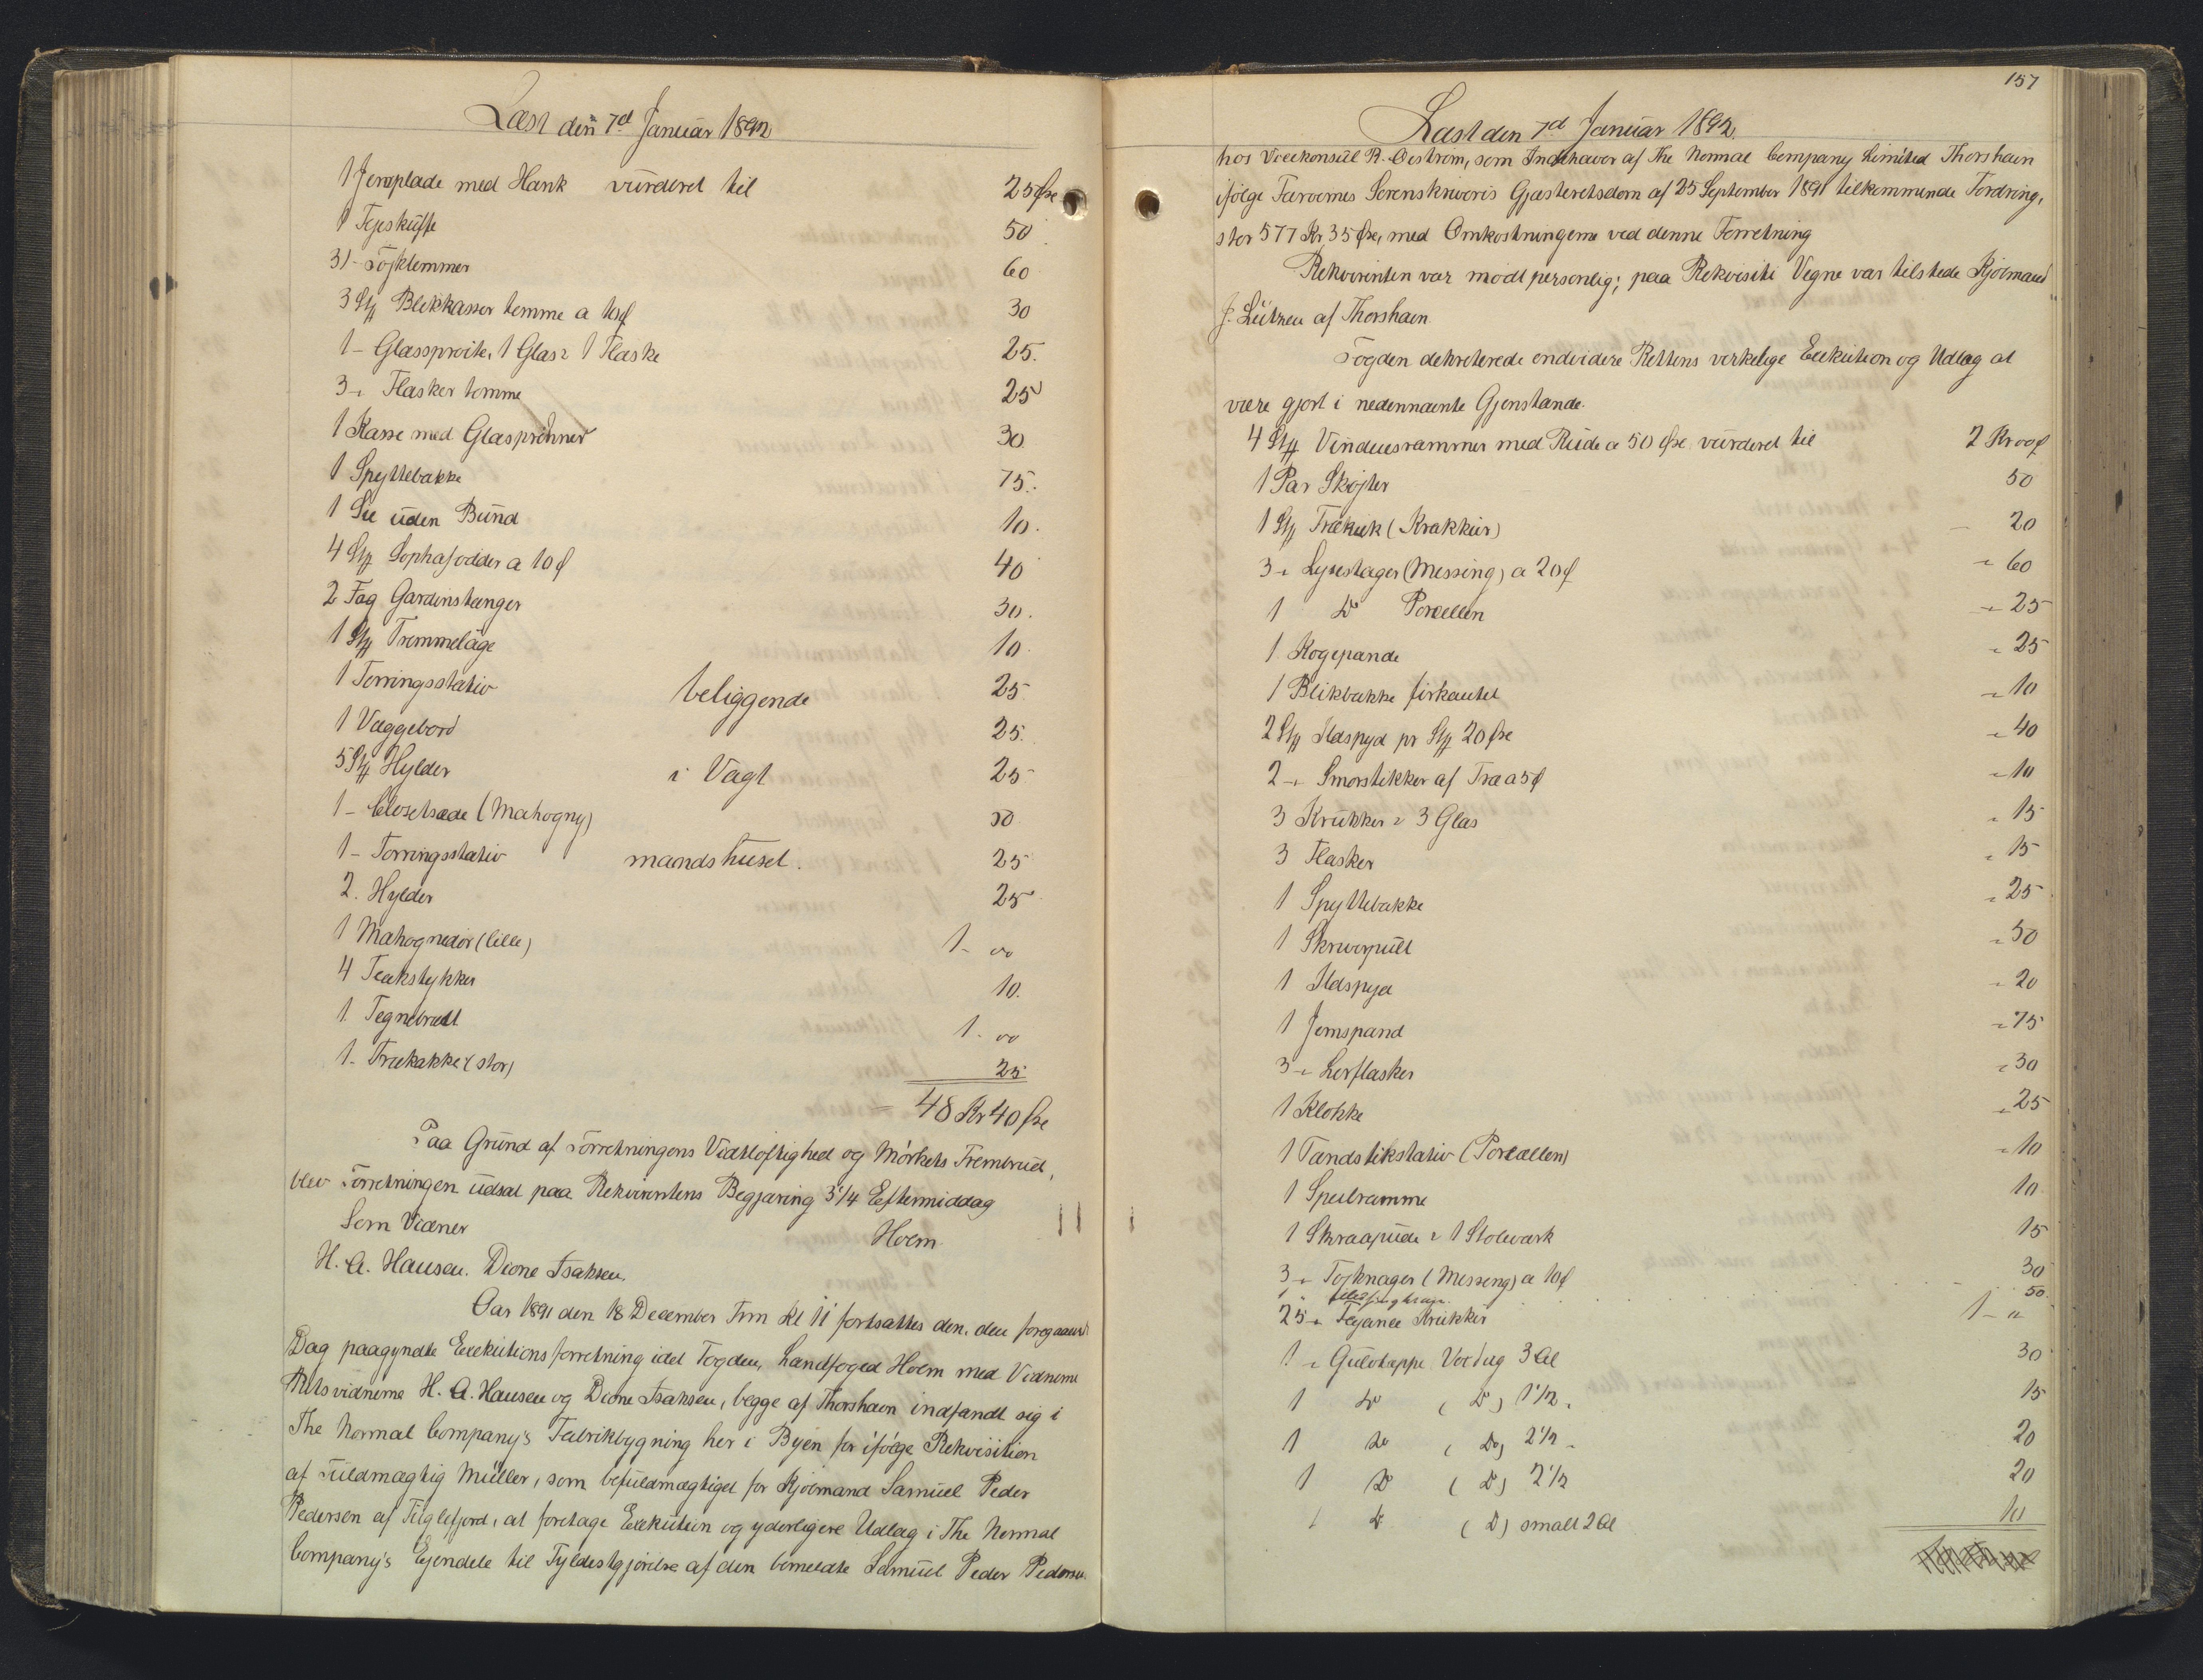 Læst den 7d Januar 1892
1 Jernplade med Hank vurderet til 25 Øre
1 Fejeskuffe 50
31 - Töjklemmer 60
3 Stk Blikkasser tomme a 10 Ø 30
1 - Glassproite, 1 Glas & 1 Flaske 25.
3 - Flasker tomme 25
1 Kasse med Glasprismer 30
1 Spyttebakke 75.
1 Sie uden Bund 10.
4 Stk Sophafödder a 10 Ø 40
2 Fag Gardinstænger 30.
1 Stk Tremmelåge 10.
1 Torringsstativ beliggende 25
1 Væggebord 25.
5 Stk Hylder i Vagt 25
1 - Closetsæde (Mahogny) 50
1 - Torringsstativ mandshuset. 25
2. Hylder 25
1 Mahognedör (lille) 1 - 00
4 Teakstykker 10.
1. Tegnebrædt 1. 00
1. Trækakke (stor) 25
48 Kr 40 Øre
Paa Grund af Forretningens Vidtløftighed og Mörkets Frembrud,
blev Forretningen udsat paa Rekvirentens Begjæring 3 1/4 Eftermiddag
Som Vidner Holm
H. A. Hansen. Dione Isaksen.
Aar 1891 den 18 December Frm Kl 11 fortsattes den, den foregaaende
Dag paagyndte Exekutionsforretning idet Fogden, Landfoged Holm med Vidnerne
Retsvidnerne H. A. Hansen og Dione Isaksen, begge af Thorshavn indfandt sig i
The Normal Company's Fabrikbygning her i Byen for ifölge Rekvisition
af Fuldmægtig Müller, som befuldmægtiget for Kjöbmand Samuel Peder
Pedersen af Fuglefjord, at foretage Exekution og yderligere Udlæg i The Normal
Company's Ejendele til Fyldestgjörelse af den bemeldte Samuel Peder Pedersen
157
Læst den 7d Januar 1892.
hos Vicekonsul R. Oestrom, som Indehaver af The Normal Company Limited Thorshavn
ifölge Færoernes Sorenskriveris Gjæsteretsdom af 25 September 1891 tilkommende Fordring,
stor 577 Kr 35 Øre, med Omkostningerne ved denne Forretning
Rekvirenten var mödt personlig; paa Rekvisiti Vegne var tilstede Kjöbmand
J. Lützen af Thorshavn
Fogden dekreterede endvidere Rettens virkelige Exekution og Udlæg at
være gjort i nedennævnte Gjenstande.
4 Stk Vinduesrammer med Rude a 50 Øre vurderet til 2 Kr 00 Ø
1 Par Skøjter 50
1 Stk Trækuk (Krakkur) - 20
3 " Lysestager (Messing) a 20 Ø - 60
1 Do Porcellen - 25
1 Kogepande - 25
1 Blikbakke firkantet - 10
2 Stk Ildspyd pr Stk 20 Øre - 40
2 - Smorstikker af Træ a 5 Ø - 10
3 Krukker & 3 Glas - 15
3 Flasker - 15
1 Spyttebakke - 25
1 Skriverpult - 50
1 Ildspyd - 20
1 Jernspand - 75
3 " Lerflasker - 30
1 Klokke - 25
1 Tandstikstativ (Porcellen) - 10
1 Speilramme 10
1 Skraapude & 1 Stoleværk 15
3 " Tojknager (Messeng) a 10 Ø 30
1 " 50.
25 " Fejance Krukker 1 - "
1 " Gulvtæppe Voxdug 3 Al 30
1 Do (Do) 1 1/2 . 15
1 Do (Do) 2 1/2 - 20
1 Do (Do) 2 1/2 20
1 Do (Do) smalt 2 Al 10